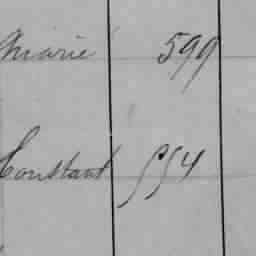 Marie 599
Constant 554